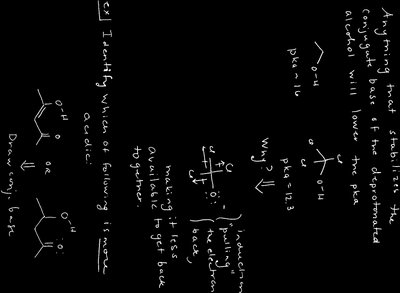 Anything that stabilizes the
conjugate base of the deprotonated
alcohol will lower the pka
O-H
pka ~ 16
Cl
Cl
O-H
pka = 12.3
Why?
Cl
Cl
O:
induction
"pulling"
the electron
back,
making it less
available to get back
together.
ex) Identify which of following is more
acidic:
O-H
O
OR
O-H
O:
Draw conj. base